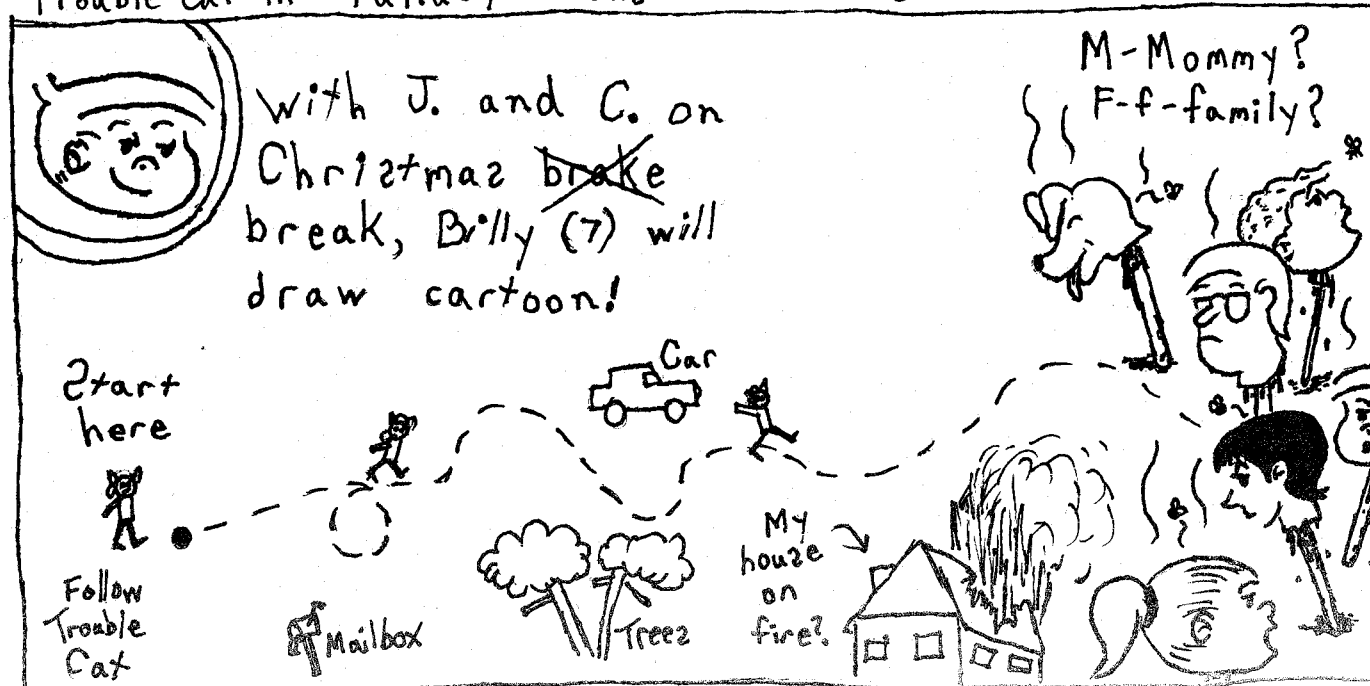 Trouble Cat in
with J. and C. on
Christmas brake
break, Billy (7) will
draw cartoon!
M-Mommy?
F-f-family?
Start
here
Car
Follow
Trouble
Cat
Mailbox
Trees
My
house
on
fire?